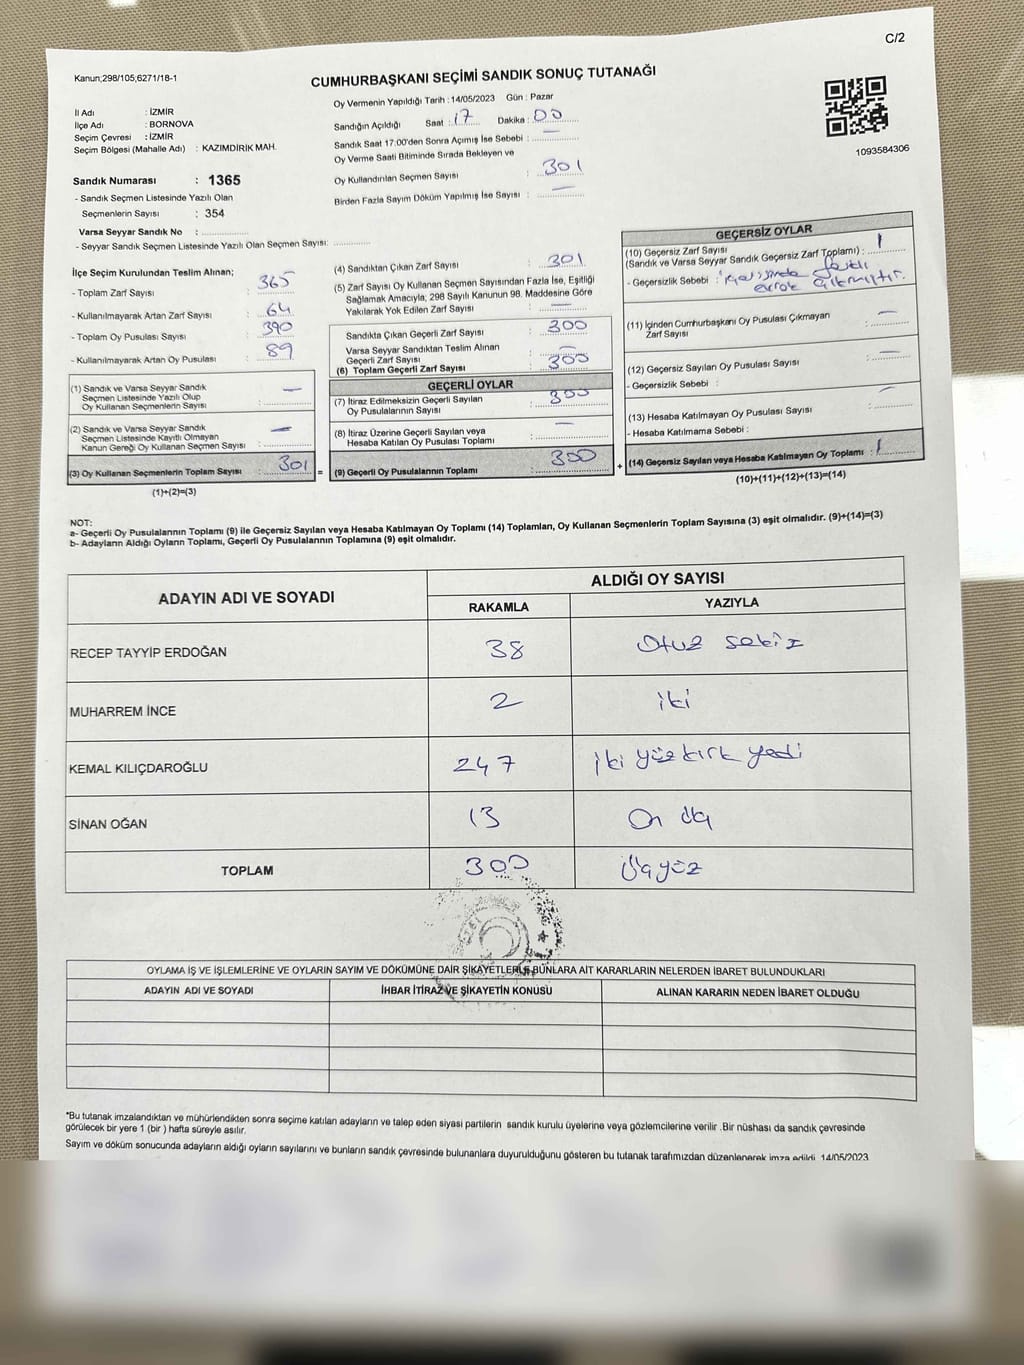 C/2
Kanun;298/105,6271/18-1
CUMHURBAŞKANI SEÇİMİ SANDIK SONUÇ TUTANAĞI
İl Adı : İZMİR
İlçe Adı : BORNOVA
Seçim Çevresi : İZMİR
Seçim Bölgesi (Mahalle Adı) : KAZIMDİRİK MAH.
Oy Vermenin Yapıldığı Tarih : 14/05/2023 Gün : Pazar
Sandığın Açıldığı Saat : 17 Dakika : 00
Sandık Saat 17.00'den Sonra Açımış İse Sebebi : —
Oy Verme Saati Bitiminde Sırada Bekleyen ve
Oy Kullandırılan Seçmen Sayısı : 301
Birden Fazla Sayım Döküm Yapılmış İse Sayısı : —
1093584306
Sandık Numarası : 1365
- Sandık Seçmen Listesinde Yazılı Olan
Seçmenlerin Sayısı : 354
Varsa Seyyar Sandık No :
- Seyyar Sandık Seçmen Listesinde Yazılı Olan Seçmen Sayısı:
İlçe Seçim Kurulundan Teslim Alınan;
- Toplam Zarf Sayısı : 365
- Kullanılmayarak Artan Zarf Sayısı : 64
- Toplam Oy Pusulası Sayısı : 390
- Kullanılmayarak Artan Oy Pusulası : 89
(1) Sandık ve Varsa Seyyar Sandık
Seçmen Listesinde Yazılı Olup
Oy Kullanan Seçmenlerin Sayısı : —
(2) Sandık ve Varsa Seyyar Sandık
Seçmen Listesinde Kayıtlı Olmayan
Kanun Gereği Oy Kullanan Seçmen Sayısı : —
(3) Oy Kullanan Seçmenlerin Toplam Sayısı : 301 =
(1)+(2)=(3)
(4) Sandıktan Çıkan Zarf Sayısı : 301
(5) Zarf Sayısı Oy Kullanan Seçmen Sayısından Fazla İse, Eşitliği
Sağlamak Amacıyla, 298 Sayılı Kanunun 98. Maddesine Göre
Yakılarak Yok Edilen Zarf Sayısı : —
Sandıkta Çıkan Geçerli Zarf Sayısı : 300
Varsa Seyyar Sandıktan Teslim Alınan
Geçerli Zarf Sayısı : —
(6) Toplam Geçerli Zarf Sayısı : 300
GEÇERLİ OYLAR
(7) İtiraz Edilmeksizin Geçerli Sayılan
Oy Pusulalarının Sayısı : 300
(8) İtiraz Üzerine Geçerli Sayılan veya
Hesaba Katılan Oy Pusulası Toplamı : —
(9) Geçerli Oy Pusulalarının Toplamı : 300 +
GEÇERSİZ OYLAR
(10) Geçersiz Zarf Sayısı
(Sandık ve Varsa Seyyar Sandık Geçersiz Zarf Toplamı) : 1
- Geçersizlik Sebebi : içerisinde farklı
evrak çıkmıştır.
(11) İçinden Cumhurbaşkanı Oy Pusulası Çıkmayan
Zarf Sayısı : —
(12) Geçersiz Sayılan Oy Pusulası Sayısı : —
- Geçersizlik Sebebi :
(13) Hesaba Katılmayan Oy Pusulası Sayısı : —
- Hesaba Katılmama Sebebi :
(14) Geçersiz Sayılan veya Hesaba Katılmayan Oy Toplamı : 1
(10)+(11)+(12)+(13)=(14)
NOT:
a- Geçerli Oy Pusulalarının Toplamı (9) ile Geçersiz Sayılan veya Hesaba Katılmayan Oy Toplamı (14) Toplamları, Oy Kullanan Seçmenlerin Toplam Sayısına (3) eşit olmalıdır. (9)+(14)=(3)
b- Adayların Aldığı Oyların Toplamı, Geçerli Oy Pusulalarının Toplamına (9) eşit olmalıdır.
ADAYIN ADI VE SOYADI
ALDIĞI OY SAYISI
RAKAMLA YAZIYLA
RECEP TAYYİP ERDOĞAN 38 Otuz sekiz
MUHARREM İNCE 2 iki
KEMAL KILIÇDAROĞLU 247 iki yüz kırk yedi
SİNAN OĞAN 13 On üç
TOPLAM 300 Üçyüz
OYLAMA İŞ VE İŞLEMLERİNE VE OYLARIN SAYIM VE DÖKÜMÜNE DAİR ŞİKAYETLERLE BUNLARA AİT KARARLARIN NELERDEN İBARET BULUNDUKLARI
ADAYIN ADI VE SOYADI İHBAR İTİRAZ VE ŞİKAYETİN KONUSU ALINAN KARARIN NEDEN İBARET OLDUĞU
*Bu tutanak imzalandıktan ve mühürlendikten sonra seçime katılan adayların ve talep eden siyasi partilerin sandık kurulu üyelerine veya gözlemcilerine verilir .Bir nüshası da sandık çevresinde
görülecek bir yere 1 (bir ) hafta süreyle asılır.
Sayım ve döküm sonucunda adayların aldığı oyların sayılarını ve bunların sandık çevresinde bulunanlara duyurulduğunu gösteren bu tutanak tarafımızdan düzenlenerek imza edildi. 14/05/2023